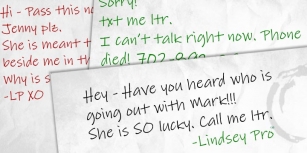 Hi - Pass this
Jenny plz.
She is meant
beside me in
Why is
-LP XO
Sorry!
txt me ltr.
I can't talk right now. Phone
died! 702
Hey - Have you heard who is
going out with Mark!!!
She is SO lucky. Call me ltr.
-Lindsey Pro